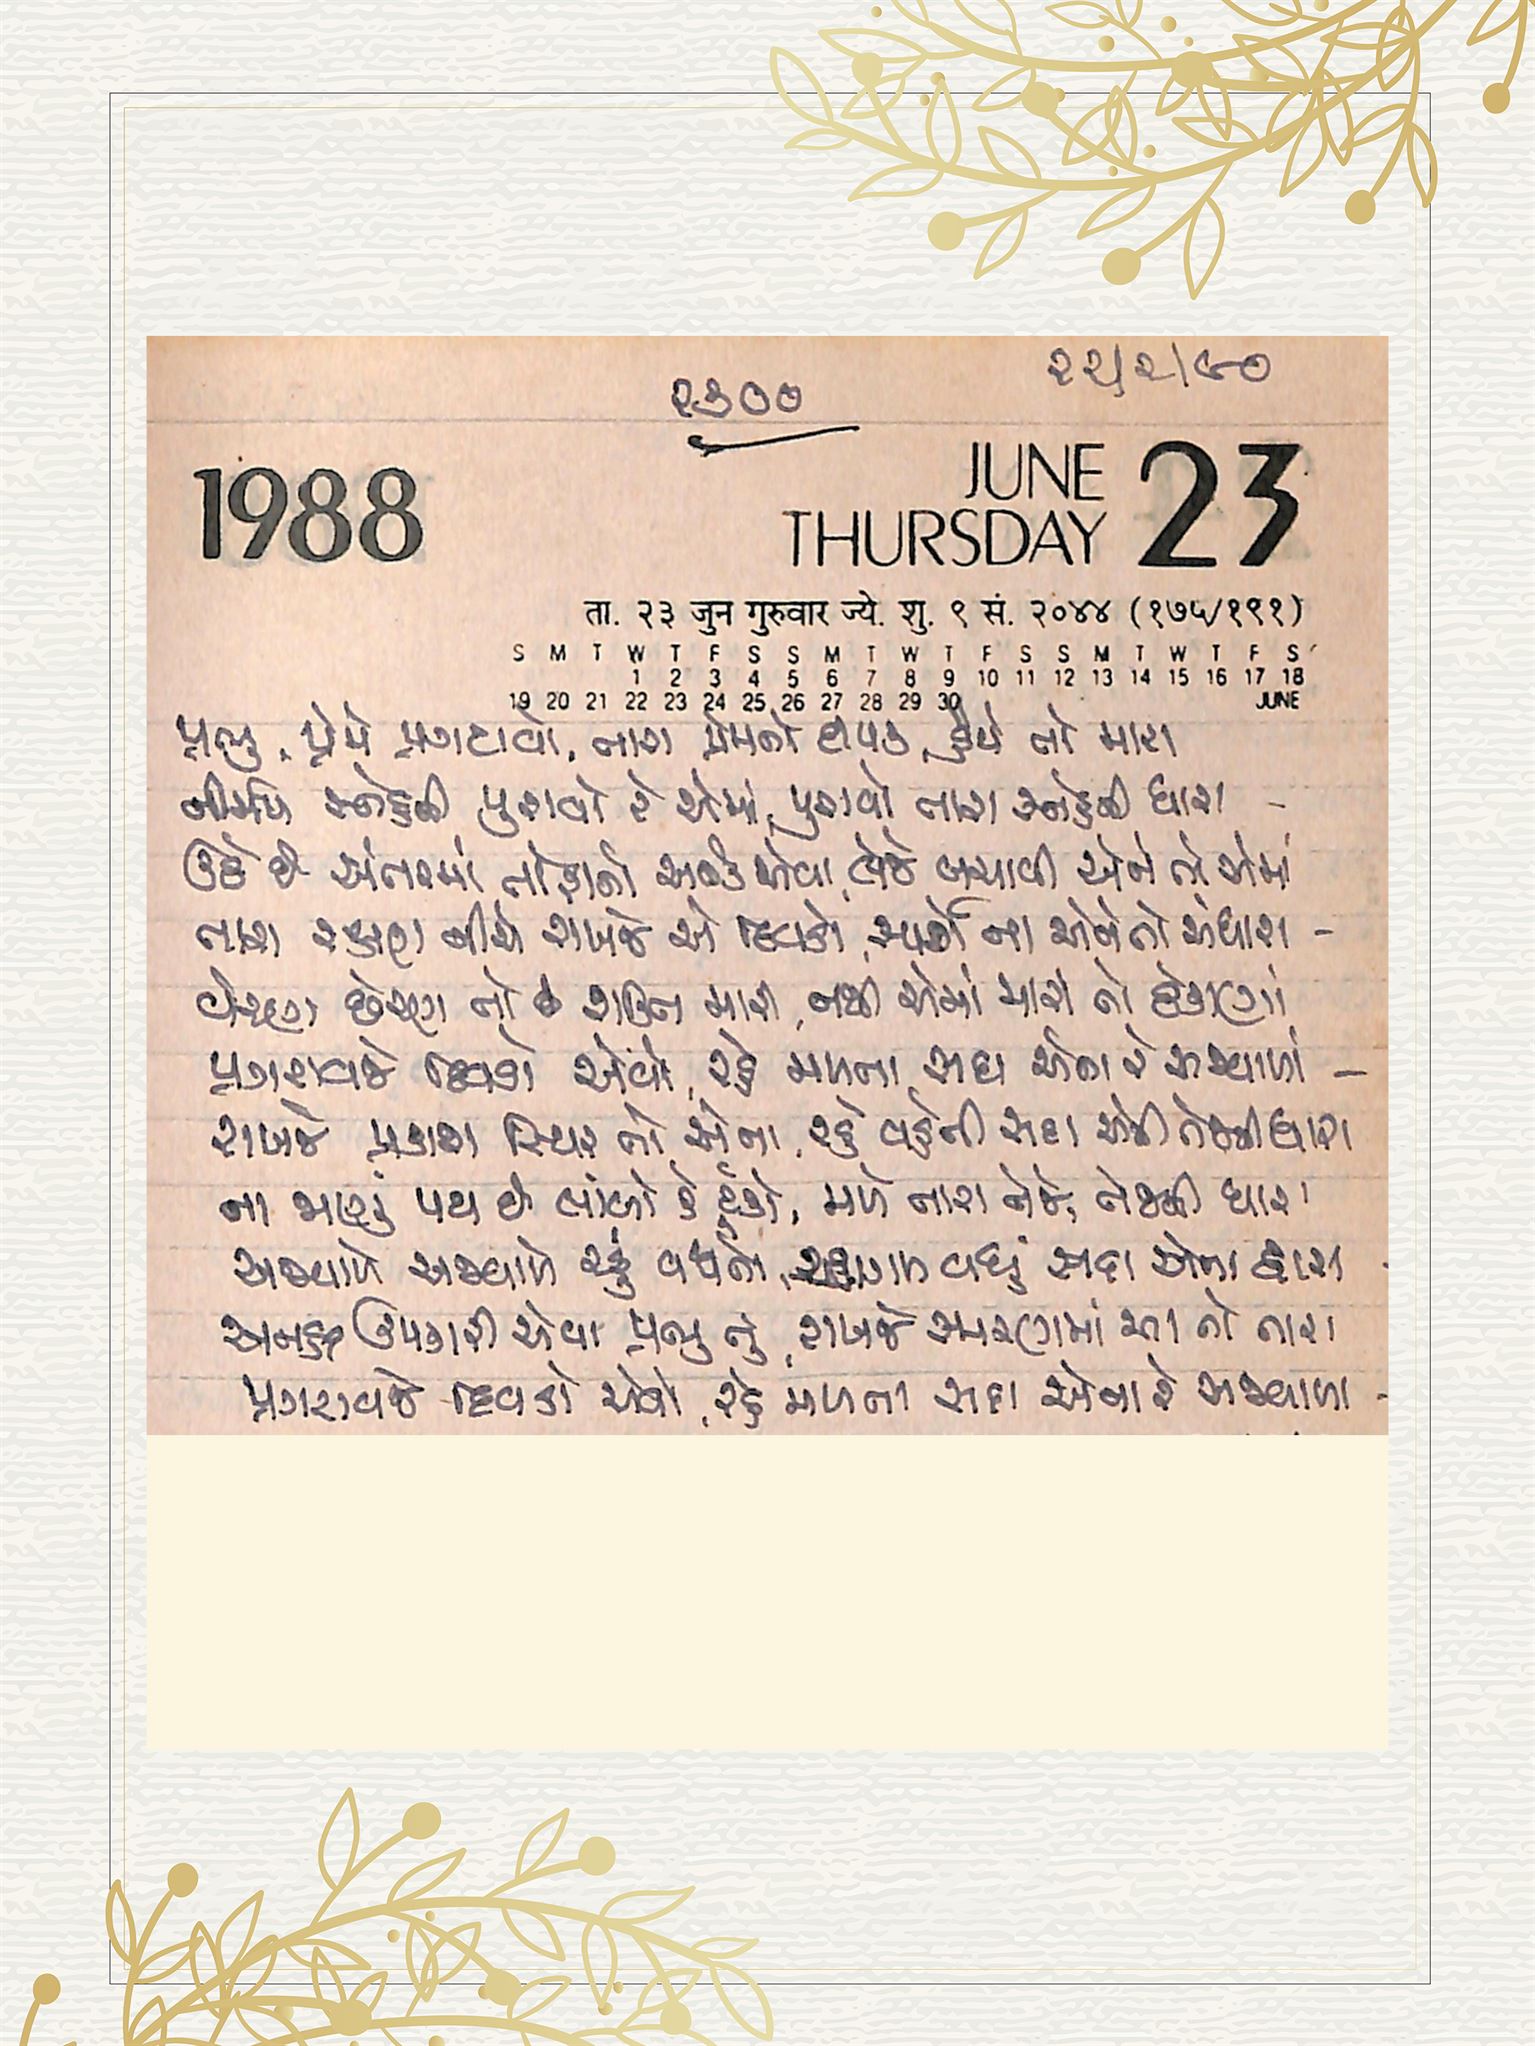 ૨૨/૨/૯૦
૨૩૦૦
1988
JUNE 23
THURSDAY
ता. २३ जुन गुरुवार ज्ये. शु. ९ सं. २०४४ (१७५/१९१)
S M T W T F S S M T W T F S S M T W T F S
1 2 3 4 5 6 7 8 9 10 11 12 13 14 15 16 17 18
19 20 21 22 23 24 25 26 27 28 29 30 JUNE
પ્રભુ, પ્રેમે પ્રગટાવો, તારા પ્રેમનો દીપક, હૈયે તો મારા
નીર્મળ સ્નેહથી પુરાવો રે એમાં, પુરાવો તારા સ્નેહની ધારા -
ઉઠે છે અંતરમાં તોફાનો એવા, લેજે બચાવી એને તો એમાં
તારા રક્ષણ નીચે રાખજે એ દિવડો, સ્પર્શે ના એને તો અંધારા -
તો છે શક્તિ મારી, નથી એમાં મારા તો ઠેકાણાં
પ્રગટાવજે દિવડો એવો, રહે મળતા સદા એના રે અજવાળાં -
રાખજે પ્રકાશ સ્થિર તો એના, રહે વહેતી સદા એની તેજની ધારા
ના જાણું પથ છે લાંબો કે ટૂંકો, મળે તારા તેજે, તેજની ધારા
અજવાળે અજવાળે રહું વધતો, આગળ વધું સદા એના દ્વારા -
ઉપકારી એવા પ્રભુ તું, રાખજે સ્મરણમાં આ તો તારા
પ્રગટાવજે દિવડો એવો, રહે મળતા સદા એના રે અજવાળા -